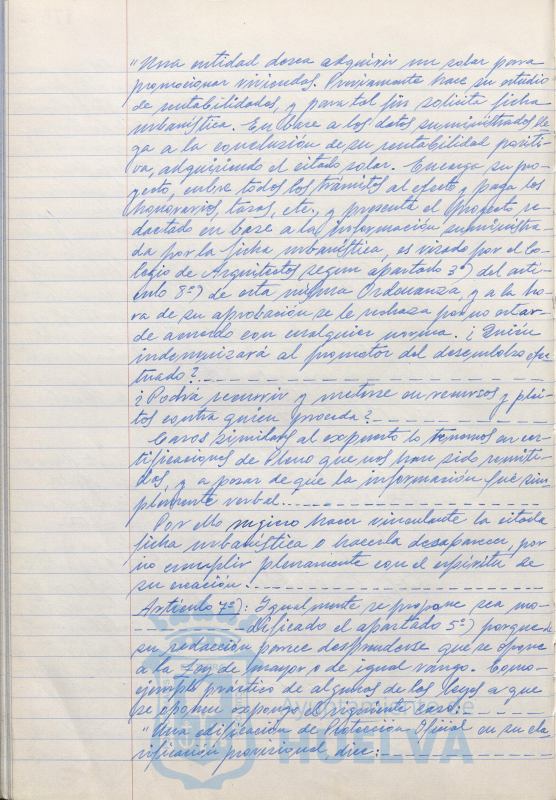 "Una entidad desea adquirir un solar para
promocionar viviendas. Previamente hace su estudio
de rentabilidades, y para tal fin solicita ficha
urbanística. En base a los datos suministrados lle
ga a la conclusión de su rentabilidad positi-
va, adquiriendo el citado solar. Encarga su pro-
yecto, cubre todos los trámites al efecto y paga los
honorarios, tasas, etc., y presenta el proyecto re-
dactado en base a la información suministra-
da por la ficha urbanística, es visado por el Co-
legio de Arquitectos segun apartado 3º) del artí-
culo 8º) de esta misma Ordenanza, y a la ho-
ra de su aprobación se le rechaza por no estar
de acuerdo con cualquier norma. ¿Quién
indemnizará al promotor del desembolso efec
tuado?
¿Podrá recurrir y meterse en recursos y plei-
tos contra quien proceda?
Casos similares al expuesto lo tenemos en cer-
tificaciones de Pleno que nos han sido remiti-
dos, y a pesar de que la información fué sim-
plemente verbal.
Por ello sugiero hacer vinculante la citada
ficha urbanística o hacerla desaparecer, por
no cumplir plenamente con el espíritu de
su creación.
Artículo 7º): Igualmente se propone sea mo-
dificado el apartado 5º) porque de
su redacción parece desprenderse que se opone
a la Ley de mayor o de igual rango. Como
ejemplo práctico de algunos de los leyes a que
se oponen expongo el siguiente caso:
"Una edificación de Protección Oficial en su cla
sificación provisional dice:
HUELVA